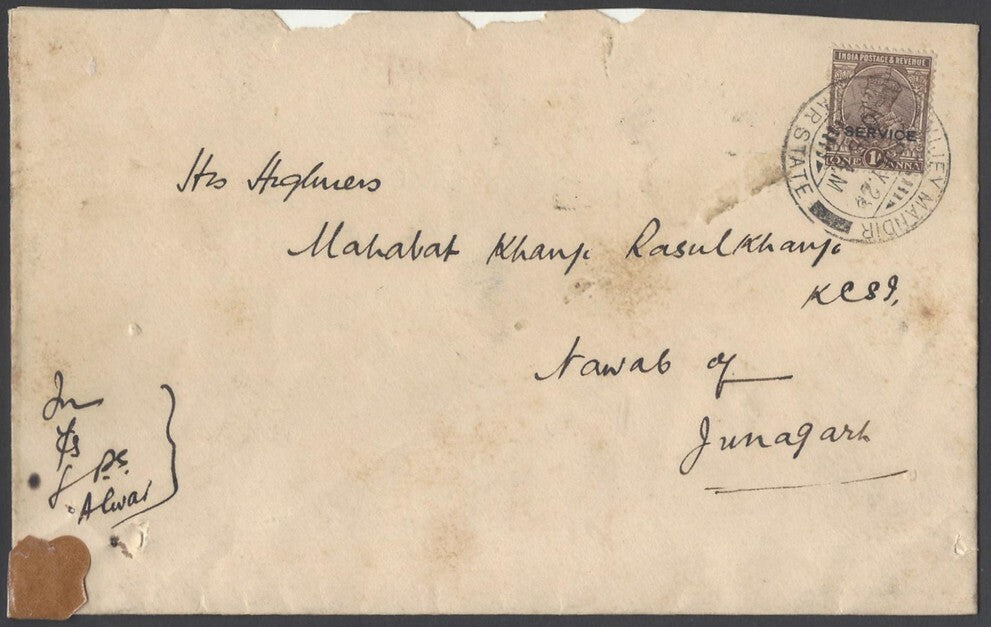 INDIA POSTAGE & REVENUE
SERVICE
ONE 1A ANNA
AR STATE
MANDIR
His Highness
Mahabat Khanji Rasulkhanji
KCSI,
Nawab of
Junagarh
Alwar